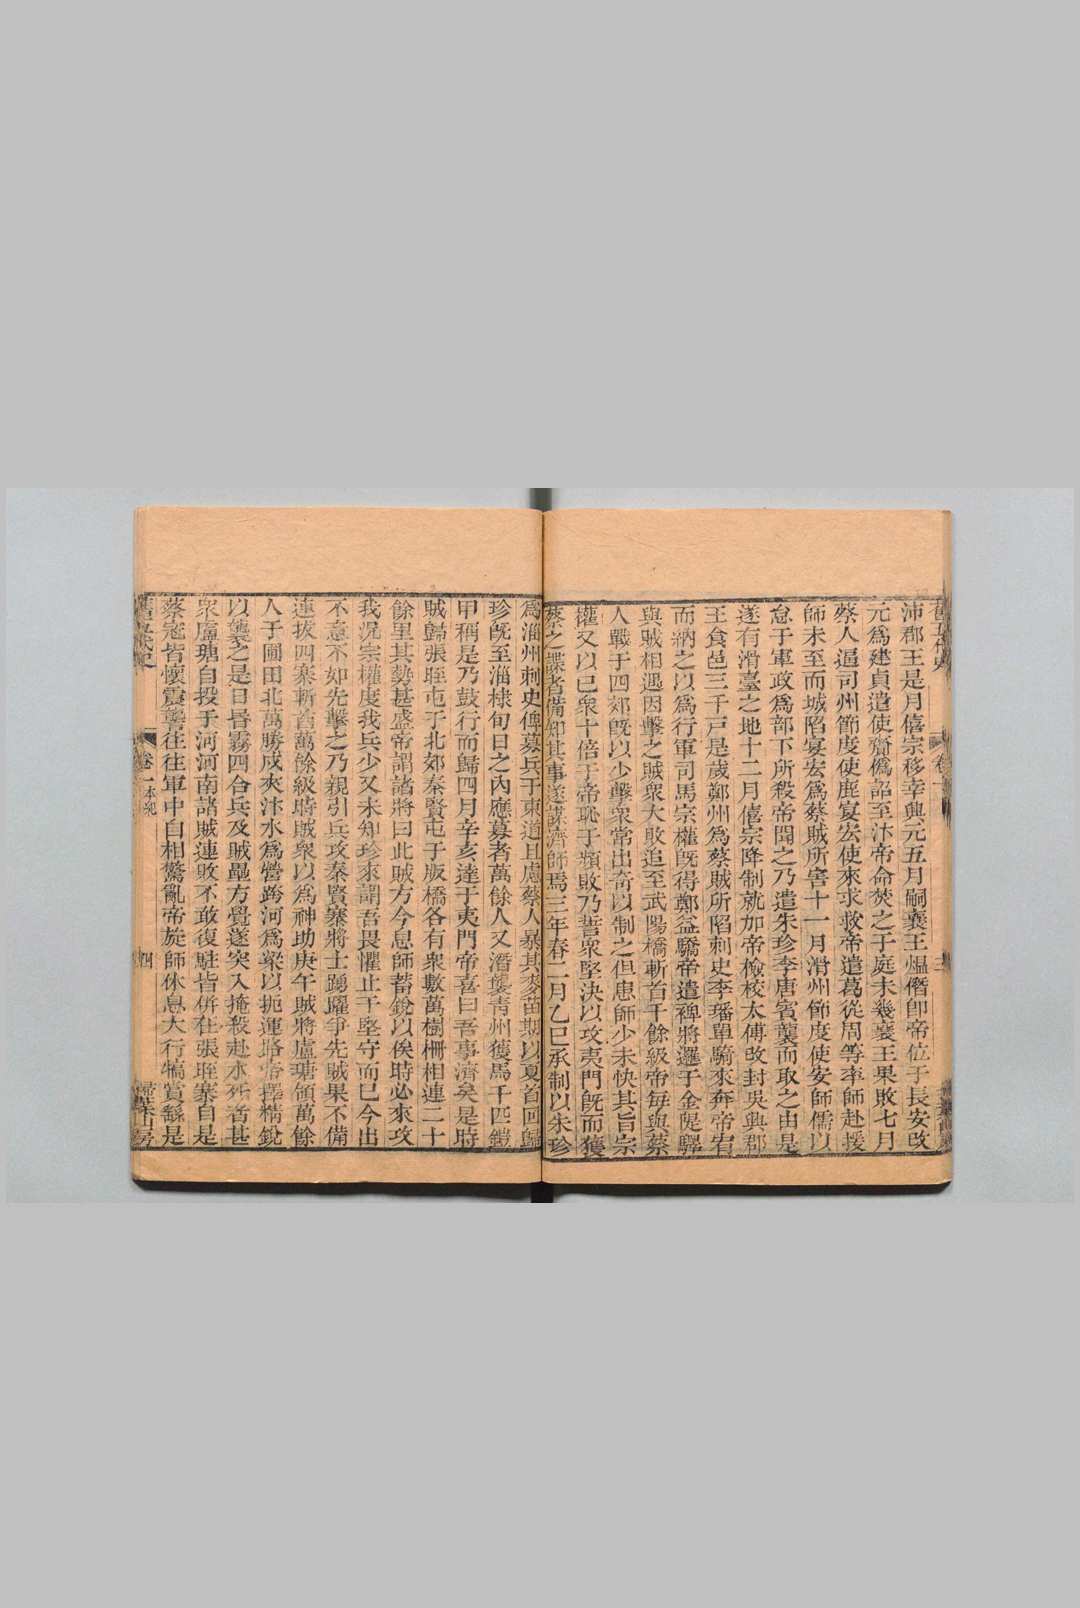 沛郡王是月僖宗移幸興元五月嗣襄王熅僭卽帝位于長安改
元爲建貞遣使齎僞詔至汴帝命焚之于庭未幾襄王果敗七月
蔡人逼司州節度使鹿宴宏使來求救帝遣葛從周等率師赴援
師未至而城陷宴宏爲蔡賊所害十一月滑州節度使安師儒以
怠于軍政爲部下所殺帝聞之乃遣朱珍李唐賓襲而取之由是
遂有滑臺之地十二月僖宗降制就加帝檢校太傅改封吳興郡
王食邑三千戸是歲鄭州爲蔡賊所陷刺史李璠單騎來奔帝宥
而納之以爲行軍司馬宗權旣得鄭益驕帝遣裨將邏于金隄驛
與賊相遇因擊之賊衆大敗追至武陽橋斬首千餘級帝每與蔡
人戰于四郊旣以少擊衆常出奇以制之但患師少未快其旨宗
權又以已衆十倍于帝恥于頻敗乃誓衆堅決以攻夷門旣而獲
蔡之諜者備知其事遂謀濟師焉三年春二月乙巳承制以朱珍
爲淄州刺史俾募兵于東道且慮蔡人暴其麥苗期以夏首回歸
珍旣至淄棣旬日之內應募者萬餘人又潛襲靑州獲馬千匹鎧
甲稱是乃鼓行而歸四月辛亥達于夷門帝喜曰吾事濟矣是時
賊歸張晊屯于北郊秦賢屯于版橋各有衆數萬樹柵相連二十
餘里其勢甚盛帝謂諸將曰此賊方今息師蓄銳以俟時必來攻
我況宗權度我兵少又未知珍來謂吾畏懼止于堅守而已今出
不意不如先擊之乃親引兵攻秦賢寨將士踴躍爭先賊果不備
連拔四寨斬首萬餘級時賊衆以爲神助庚午賊將盧瑭領萬餘
人于圃田北萬勝戍夾汴水爲營跨河爲梁以扼運路帝擇精銳
以襲之是日昏霧四合兵及賊壘方覺遂突入掩殺赴水死者甚
衆盧瑭自投于河河南諸賊連敗不敢復駐皆併在張晊寨自是
蔡寇皆懷震讋往往軍中自相驚亂帝旋師休息大行犒賞繇是
卷一本紀
四